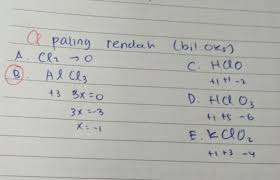 Cl paling rendah (bil oks)
A. Cl₂ → 0
B. AlCl₃
+3 3x=0
3x=-3
x=-1
C. HClO
+1+1-2
D. HClO₃
+1+5-6
E. KClO₂
+1+3-4